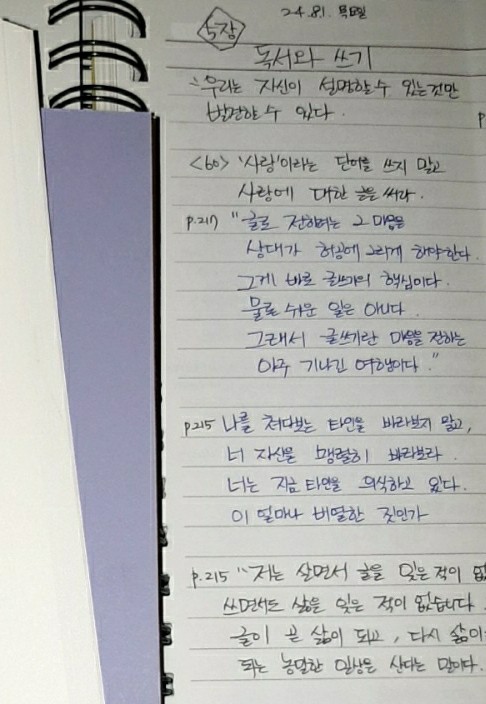 5장
24.8.1. 목요일
독서와 쓰기
우리는 자신이 설명할 수 있는것만
발견할 수 있다.
<60> '사랑'이라는 단어를 쓰지 말고
사랑에 대한 글을 써라.
p.217 "글로 전하려는 그 마음을
상대가 허공에 그리게 해야한다.
그게 바로 글쓰기의 핵심이다.
물론 쉬운 일은 아니다.
그래서 글쓰기란 마음을 전하는
아주 기나긴 여행이다."
p.215 나를 쳐다보는 타인을 바라보지 말고,
너 자신을 맹렬히 바라보라.
너는 지금 타인을 의식하고 있다.
이 얼마나 버떨한 짓인가
p.215 "저는 살면서 글을 잊은 적이 없
쓰면서도 삶을 잊은 적이 없습니다.
글이 곧 삶이 되고, 다시 삶이
되는 농밀한 일상을 산다는 말이다.